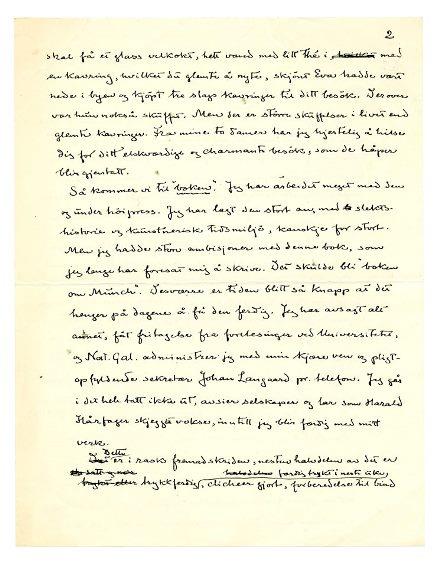 2
skal få et glass velkokt, hett vand med litt thé i, med
en kavring, hvilket du glemte å nyte, skjönt Eva hadde vært
nede i byen og kjöpt tre slags kavringer til ditt besök. Desover
var hun nokså skuffet. Men der er större skuffelser i livet end
glemte kavringer. Fra mine to damer har jeg hjertelig å hilse
dig for ditt elskværdige og charmante besök, som de håper
blir gjentatt.
Så kommer vi til "boken". Jeg har arbeidet meget med den
og under höipress. Jeg har lagt den stort an, med slekts-
historie og kunstneriske tidsmiljö, kanskje for stort.
Men jeg hadde store ambisjoner med denne bok, som
jeg lenge har foresat mig å skrive. Det skulde bli "boken
om Munch". Desværre er tiden blitt så knapp at det
henger på dagene å få den ferdig. Jeg har avsagt alt
annet, fåt fritagelse fra forelesninger ved Universitetet,
og Nat. Gal. administrerer jeg med min kjære ven og pligt-
opfyldende sekretær Johan Langaard pr. telefon. Jeg går
i det hele tatt ikke ut, avsier selskaper og lar som Harald
Hårfager skjegget vokse, inntil jeg blir færdig med mitt
verk.
Dette er i rask fremadskriden, nesten halvdelen av det er
halvdelen færdig trykt i neste uke,
trykkferdig, clicheer gjort, forberedelse til bind